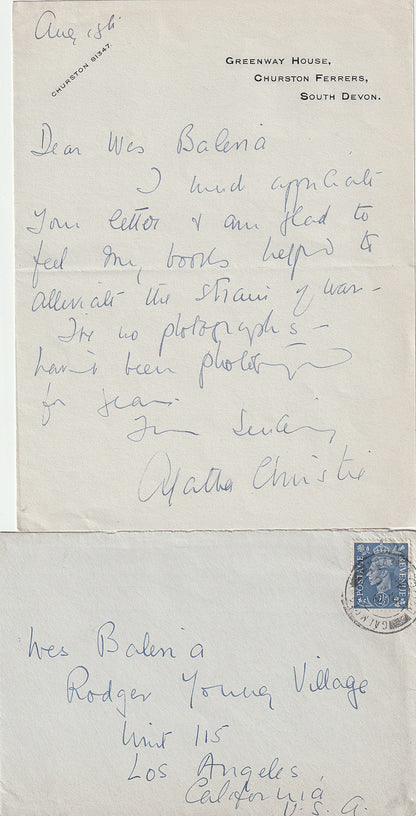 Aug 15th
CHURSTON 81347.
GREENWAY HOUSE,
CHURSTON FERRERS,
SOUTH DEVON.
Dear Wes Balenia
I much appreciate
your letter & am glad to
feel my books helped to
alleviate the strain of war -
I've no photographs -
haven't been photographed
for years.
Yours Sincerely
Agatha Christie
POSTAGE
REVENUE
Wes Balenia
Rodger Young Village
Unit 115
Los Angeles
California
U.S.A.